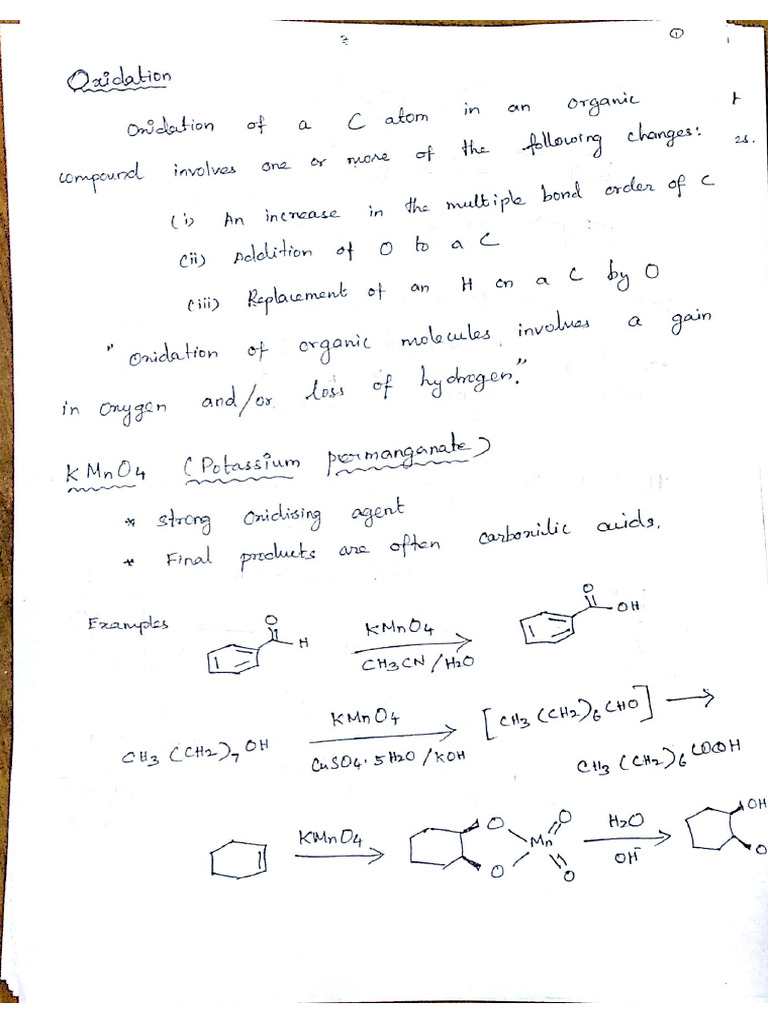 ①
Oxidation
Oxidation of a C atom in an organic
compound involves one or more of the following changes:
(i) An increase in the multiple bond order of C
(ii) Addition of O to a C
(iii) Replacement of an H on a C by O
"Oxidation of organic molecules involves a gain
in oxygen and/or loss of hydrogen."
KMnO4 (Potassium permanganate)
* Strong oxidising agent
* Final products are often carboxilic acids.
Examples
O
H
KMnO4
CH3CN/H2O
O
OH
CH3(CH2)7OH
KMnO4
CuSO4·5H2O/KOH
[CH3(CH2)6CHO] →
CH3(CH2)6COOH
KMnO4
O
O
Mn
O
O
H2O
OH⁻
OH
O